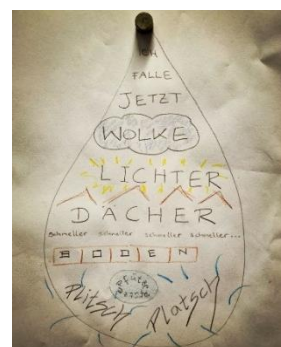 ICH
FALLE
JETZT
WOLKE
LICHTER
DÄCHER
schneller schneller schneller schneller...
BODEN
PFÜTZE
Plitsch Platsch